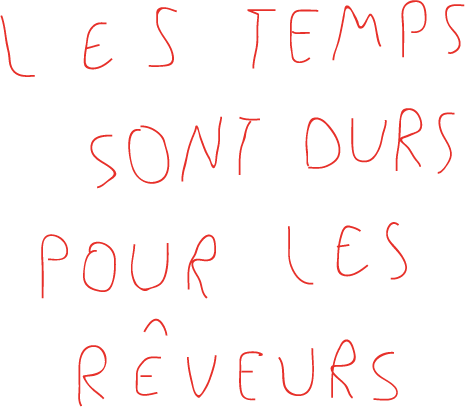 LES TEMPS
SONT DURS
POUR LES
RÊVEURS